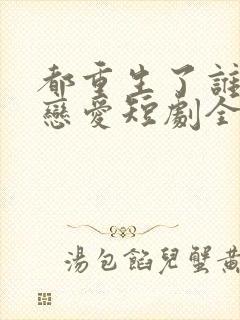 都重生了誰
戀愛短劇全
湯包餡兒蟹黃